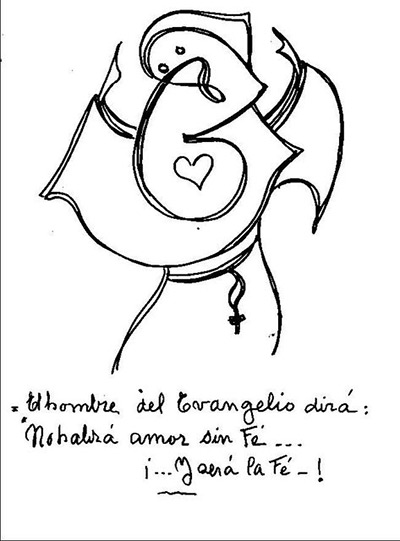 = El hombre del Evangelio dirá:
"No habrá amor sin Fé ...
¡...Y será la Fé -!